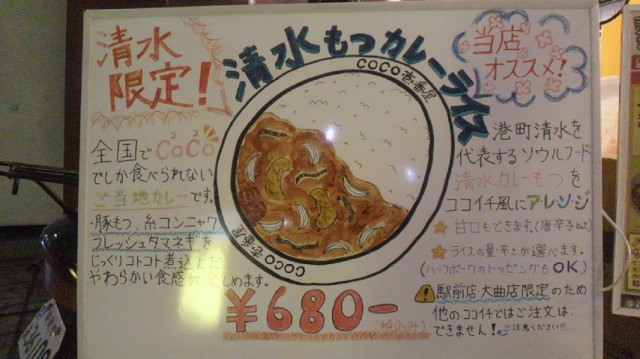 清水
限定!
清水もつカレーライス
当店
オススメ!
COCO壱番屋
COCO壱番屋
全国で
ココ
CoCo
でしか食べられない
ご当地カレーです。
・豚もつ、糸コンニャク
フレッシュタマネギを
じっくりコトコト煮込んだ
やわらかい食感が楽しめます。
¥680-
(税込み)
港町清水を
代表するソウルフード
清水カレーもつを
ココイチ風にアレンジ
★甘口もできます。(唐辛子ぬき)
★ライスの量・辛さが選べます。
(ハーフポークのトッピングもOK)
⚠駅前店、大曲店限定のため
他のココイチではご注文は、
できません! ご注意ください!!